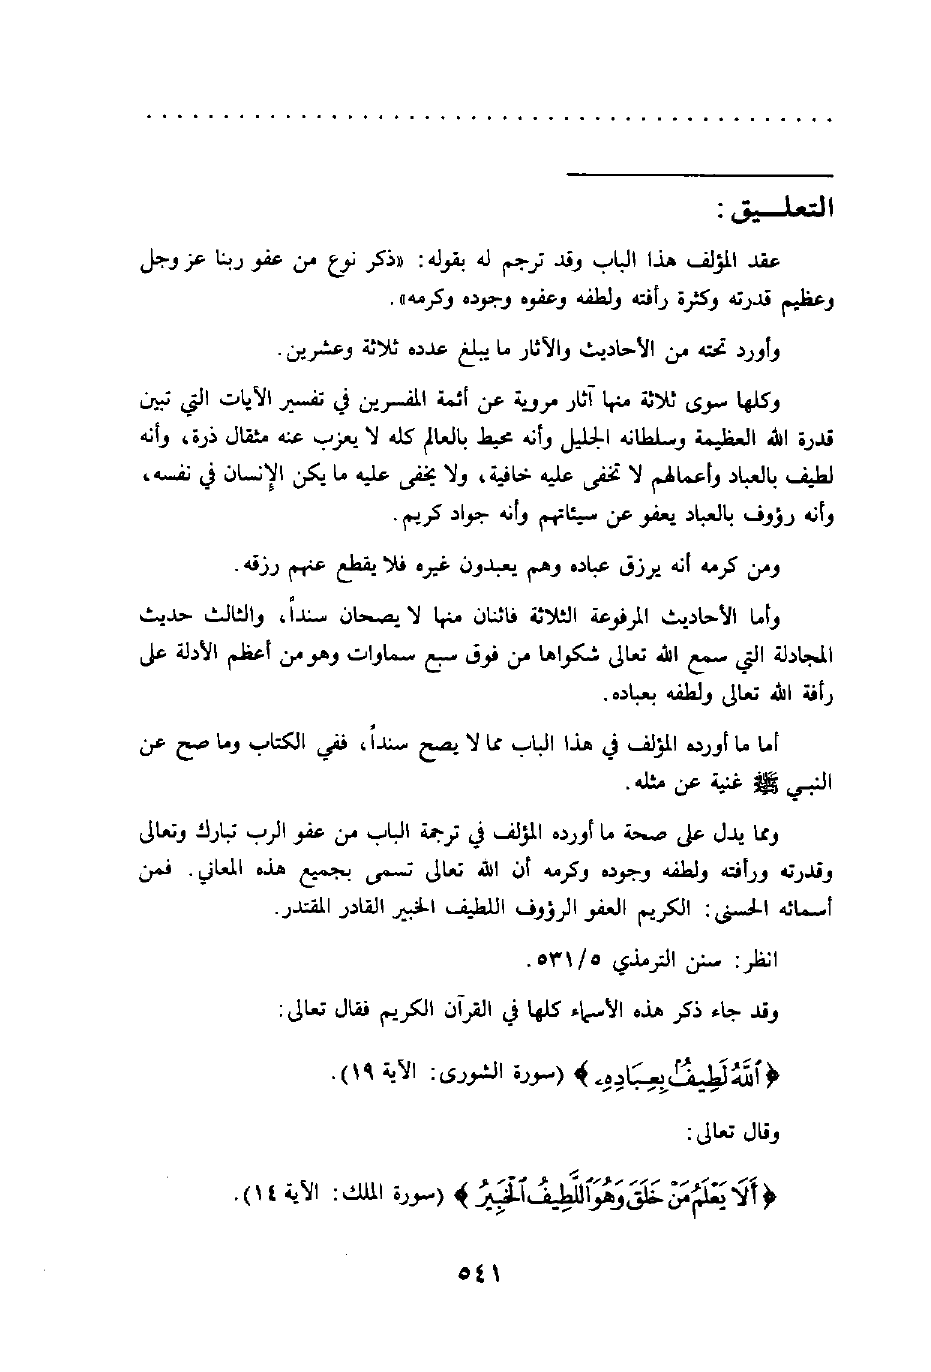 التعلـــيق :
عقد المؤلف هذا الباب وقد ترجم له بقوله: «ذكر نوع من عفو ربنا عز وجل
وعظيم قدرته وكثرة رأفته ولطفه وعفوه وجوده وكرمه».
وأورد تحته من الأحاديث والآثار ما يبلغ عدده ثلاثة وعشرين.
وكلها سوى ثلاثة منها آثار مروية عن أئمة المفسرين في تفسير الآيات التي تبين
قدرة الله العظيمة وسلطانه الجليل وأنه محيط بالعالم كله لا يعزب عنه مثقال ذرة، وأنه
لطيف بالعباد وأعمالهم لا تخفى عليه خافية، ولا يخفى عليه ما يكن الإنسان في نفسه،
وأنه رؤوف بالعباد يعفو عن سيئاتهم وأنه جواد كريم.
ومن كرمه أنه يرزق عباده وهم يعبدون غيره فلا يقطع عنهم رزقه.
وأما الأحاديث المرفوعة الثلاثة فاثنان منها لا يصحان سنداً، والثالث حديث
المجادلة التي سمع الله تعالى شكواها من فوق سبع سماوات وهو من أعظم الأدلة على
رأفة الله تعالى ولطفه بعباده.
أما ما أورده المؤلف في هذا الباب مما لا يصح سنداً، ففي الكتاب وما صح عن
النبـي ﷺ غنية عن مثله.
ومما يدل على صحة ما أورده المؤلف في ترجمة الباب من عفو الرب تبارك وتعالى
وقدرته ورأفته ولطفه وجوده وكرمه أن الله تعالى تسمى بجميع هذه المعاني. فمن
أسمائه الحسنى: الكريم العفو الرؤوف اللطيف الخبير القادر المقتدر.
انظر: سنن الترمذي ٥/٥٣١.
وقد جاء ذكر هذه الأسماء كلها في القرآن الكريم فقال تعالى:
﴿ ٱللَّهُ لَطِيفٌۢ بِعِبَادِهِۦ ﴾ (سورة الشورى: الآية ١٩).
وقال تعالى:
﴿ أَلَا يَعْلَمُ مَنْ خَلَقَ وَهُوَ ٱللَّطِيفُ ٱلْخَبِيرُ ﴾ (سورة الملك: الآية ١٤).
٥٤١